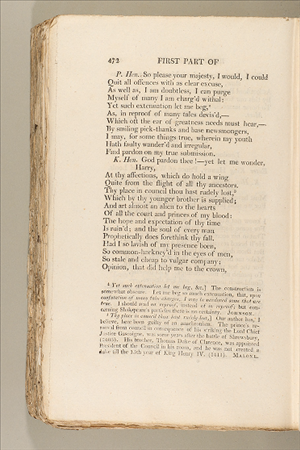 472 FIRST PART OF
P. Hen. So please your majesty, I would, I could
Quit all offences with as clear excuse,
As well as, I am doubtless, I can purge
Myself of many I am charg'd withal:
Yet such extenuation let me beg,
As, in reproof of many tales devis'd,—
Which oft the ear of greatness needs must hear,—
By smiling pick-thanks and base newsmongers,
I may, for some things true, wherein my youth
Hath faulty wander'd and irregular,
Find pardon on my true submission.
K. Hen. God pardon thee!—yet let me wonder,
Harry,
At thy affections, which do hold a wing
Quite from the flight of all thy ancestors.
Thy place in council thou hast rudely lost,
Which by thy younger brother is supplied;
And art almost an alien to the hearts
Of all the court and princes of my blood:
The hope and expectation of thy time
Is ruin'd; and the soul of every man
Prophetically does forethink thy fall.
Had I so lavish of my presence been,
So common-hackney'd in the eyes of men,
So stale and cheap to vulgar company;
Opinion, that did help me to the crown,
Yet such extenuation let me beg, &c.] The construction is
somewhat obscure. Let me beg so much extenuation, that, upon
confutation of many false charges, I may be pardoned some that are
true. I should read on reproof, instead of in reproof; but
there is no certainty. JOHNSON.
Thy place in council thou hast rudely lost,] Our author has, I
believe, here been guilty of an anachronism. The prince's re-
moval from council in consequence of his striking the Lord Chief
Justice Gascoigne, was some years after the battle of Shrewsbury,
(1403). His brother, Thomas Duke of Clarence, was appointed
President of the Council in his room, and he was not created a
duke till the 13th year of King Henry IV. (1411). MALONE.